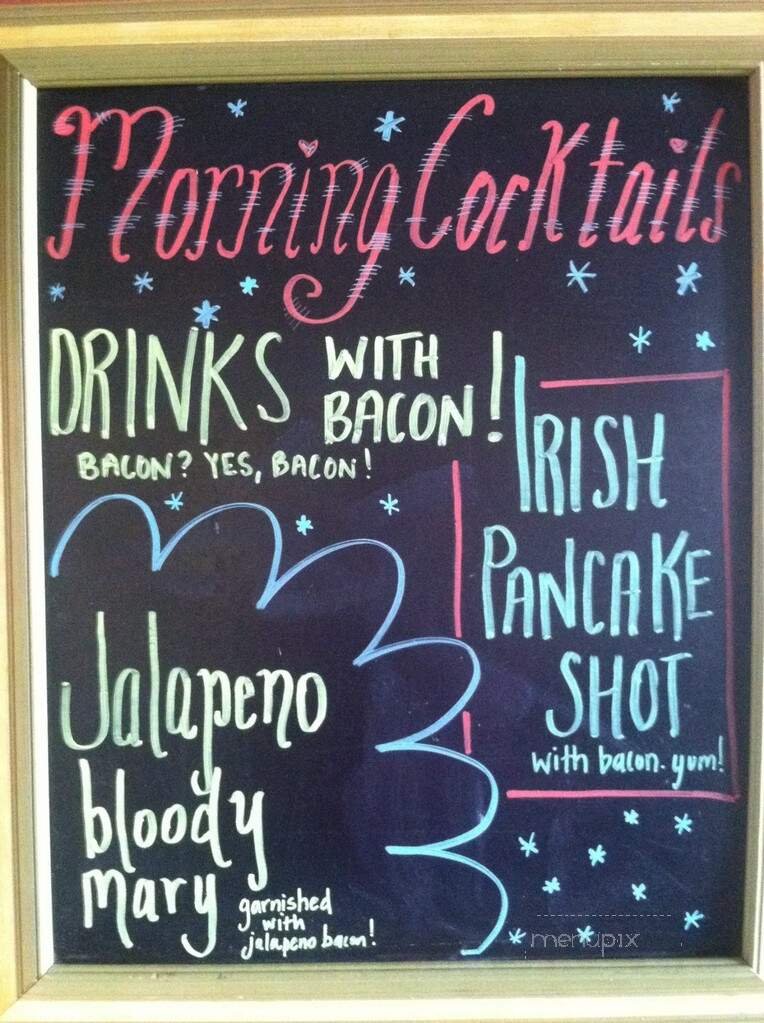 Morning Cocktails
DRINKS WITH
BACON!
BACON? YES, BACON!
IRISH
PANCAKE
SHOT
with bacon. yum!
Jalapeno
bloody
mary
garnished
with
jalapeno bacon!
menupix